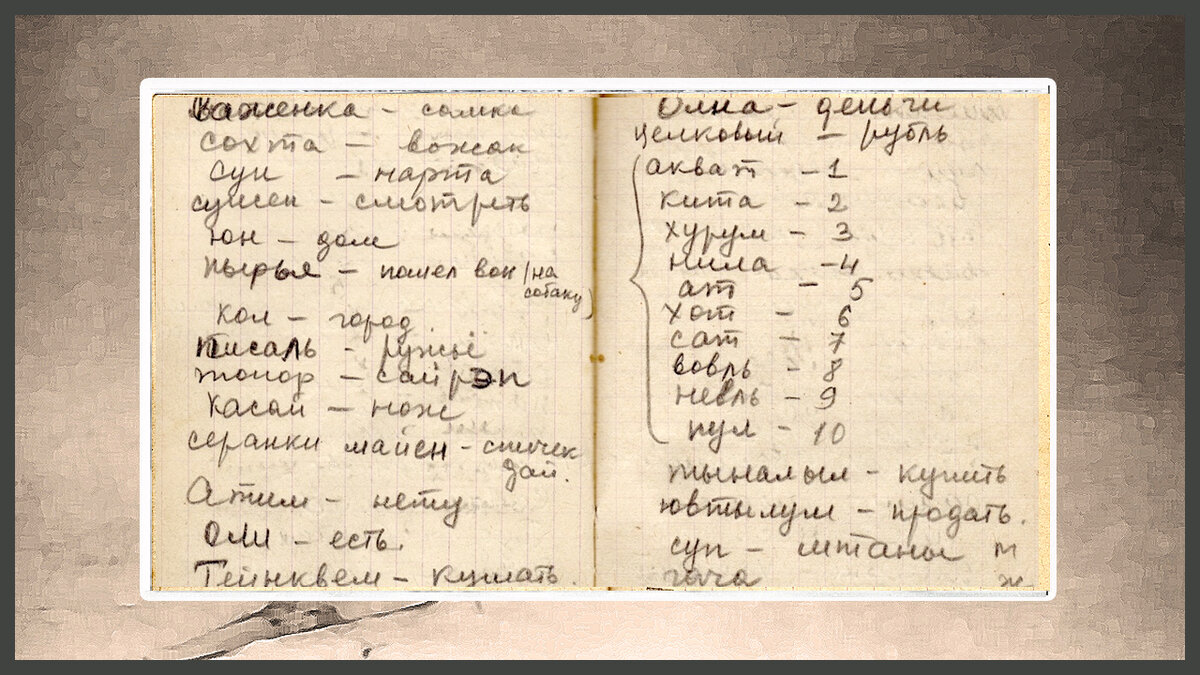 Важенка - самка
сохта - вожак
сун - нарта
сунсен - смотреть
юн - дом
пырья - пошел вон (на
собаку)
кол - город
писаль - ружьё
топор - сайрэп
касай - нож
серанки майен - спичек
дай.
Атим - нету
Оли - есть.
Тейнквем - кушать.
Олна - деньги
целковый - рубль
акват - 1
кита - 2
хурум - 3
нила - 4
ат - 5
хот - 6
сат - 7
вовль - 8
невль - 9
пул - 10
тыналыл - купить
ювтылум - продать.
суп - штаны м
ж